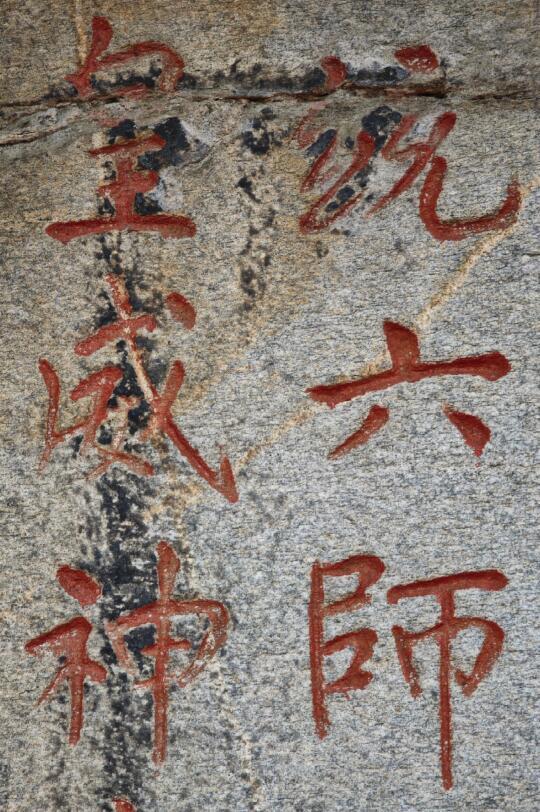 統六師
皇威神